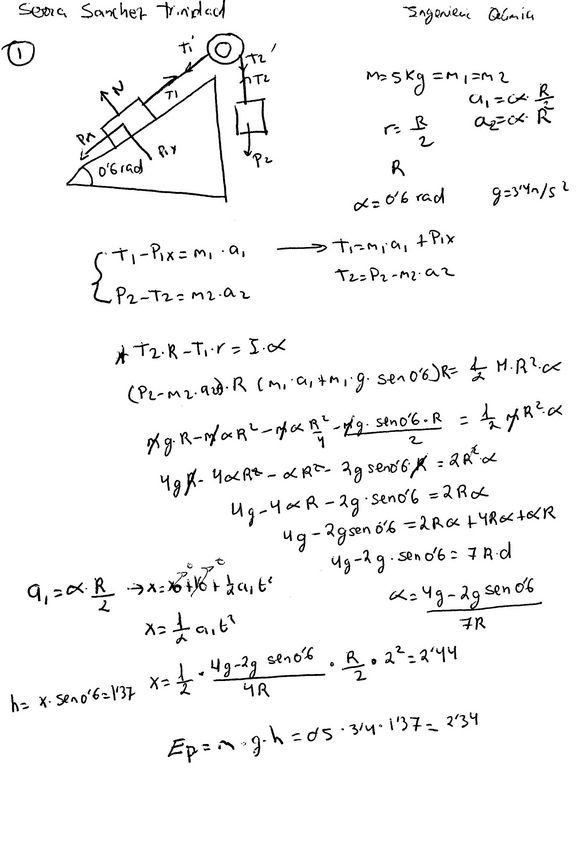 Serra Sanchez Trinidad
Ingenieria Química
①
T1'
T2'
T2
N
T1
P1x
P1y
0'6 rad
P2
m=5kg=m1=m2
a1=α·R/2
a2=α·R
r=R/2
R
α=0'6 rad g=3'4m/s²
{T1-P1x=m1·a1 → T1=m1·a1+P1x
P2-T2=m2·a2 T2=P2-m2·a2
* T2·R-T1·r=I·α
(P2-m2·a2)·R (m1·a1+m1·g·sen0'6)R=1/2 M·R²·α
mg·R-mαR²-mα R²/4 - mg·sen0'6·R/2 = 1/2 mR²·α
4gR-4αR²-αR²-2g sen0'6·R=2R²·α
4g-4αR-2g·sen0'6=2Rα
4g-2gsen0'6=2Rα+4Rα+αR
4g-2g·sen0'6=7R·α
α=4g-2g sen0'6/7R
a1=α·R/2 → x=x0+v0+1/2 a1t²
x=1/2 a1t²
x=1/2·4g-2g sen0'6/4R·R/2·2²=2'44
h=x·sen0'6=1'37
Ep=m·g·h=0'5·3'4·1'37=2'34